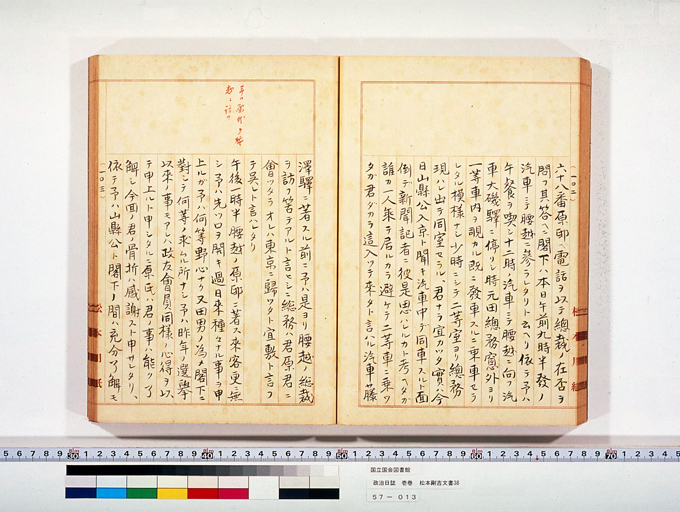 (一〇二)
六十八番原邸ヘ電話ヲ以テ総裁ノ在否ヲ
問フ其答ヘニ閣下ハ本日午前九時半発ノ
汽車ニテ腰越ニ参ラレタリト云ヘリ依テ予ハ
午餐ヲ喫シ十二時ノ汽車ニテ腰越ニ向フ汽
車大磯驛ニ停リシ時元田総務窓外ヨリ
一等車内ヲ覗カル既ニ發車スルニ乗車セラ
レタル模様ナシ少時ニシテ二等室ヨリ総務
現ハレ出テ同室セラル君ナラ宜カツタ實ハ今
日山縣公入京ト聞キ汽車中デ同車スルト面
倒デ新聞記者ニ彼是思ハレルカト考ヘタカ
誰カ一人乗テ居ルカラ避ケテ二等車ニ乗ツ
タガ君ダカラ這入ツテ来タト言ハル汽車ハ藤
澤驛ニ著スル前ニ予ハ是ヨリ腰越ノ総裁
ヲ訪フ筈デアルト言セシニ総務ハ君原君ニ
會ツタラオレハ東京ニ歸ツタト宜敷ト言フ
テ呉レト言ハレタリ
午後一時半腰越ノ原邸ニ著ス来客更ニ無
シ予ハ先ツ口ヲ開キ過日来種々ナル事ヲ申
上ルガ予ハ何等野心ナク又田男ノ為メ閣下ニ
對シテ何等ノ求ムル所ナシ予ハ昨年ノ選挙
以来ノ事モアレハ政友會員同様ノ心得ヲ以
テ申上ルト申シタルニ原氏ハ君ノ事ハ能ク了
解シ今回ノ君ノ骨折ハ感謝スト申サレタリ、
依テ予ハ山縣公ト閣下ノ間ハ充分了解モ
(一〇三)
松本用紙
30 40 50 60 70
国立国会図書館
政治日誌 壱巻 松本剛吉文書38
57-013